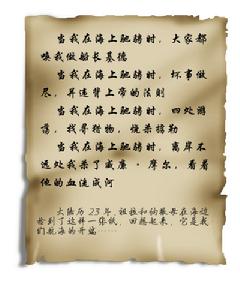 当我在海上驰骋时，大家都
唤我做船长基德
当我在海上驰骋时，坏事做
尽，并违背上帝的法则
当我在海上驰骋时，四处游
荡，找寻猎物，烧杀掳勒
当我在海上驰骋时，离岸不
远处我杀了威廉·摩尔，看着
他的血流成河
大陆历23年，祖拉和纳撒母在海边
捡到了这样一张纸，回想起来，它是我
们航海的开端……